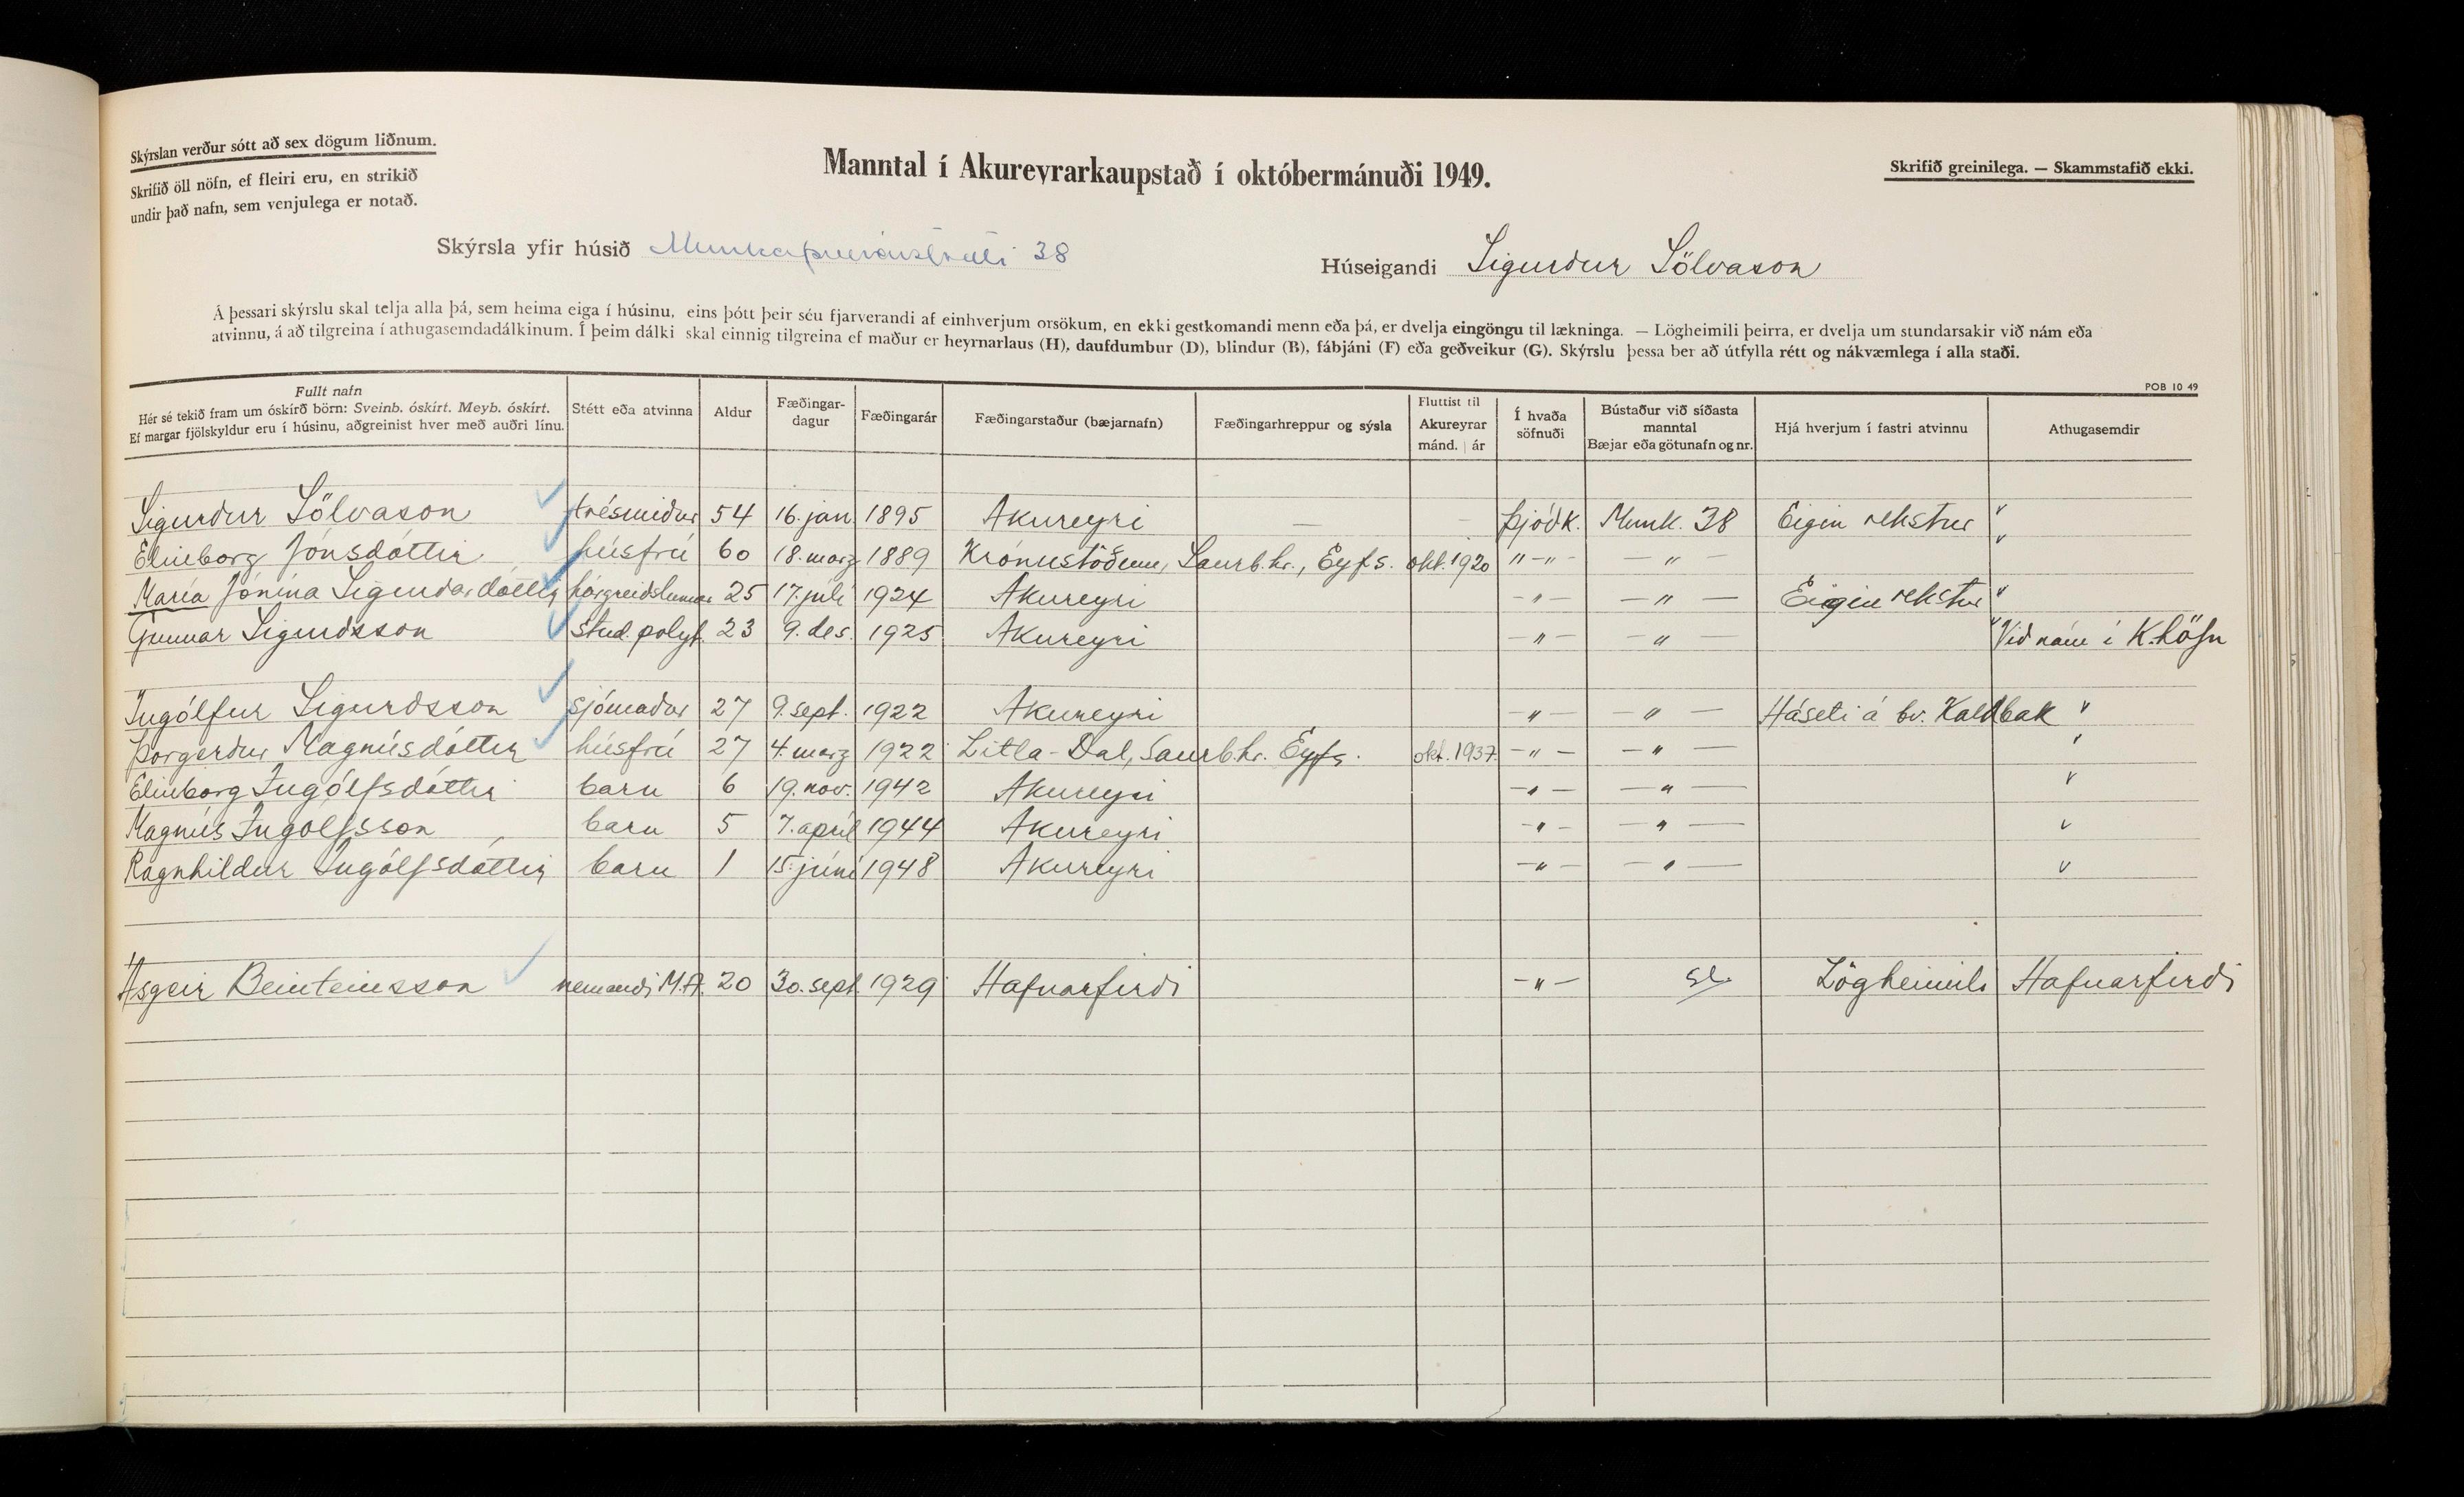 Skýrslan verður sótt að sex dögum liðnum.
Skrifið öll nöfn, ef fleiri eru, en strikið
undir það nafn, sem venjulega er notað.
Manntal í Akureyrarkaupstað í októbermánuði 1949.
Skrifið greinilega. — Skammstafið ekki.
Skýrsla yfir húsið Munkaþverárstræti 38
Húseigandi Sigurður Sölvason
Á þessari skýrslu skal telja alla þá, sem heima eiga í húsinu, eins þótt þeir séu fjarverandi af einhverjum orsökum, en ekki gestkomandi menn eða þá, er dvelja eingöngu til lækninga. — Lögheimili þeirra, er dvelja um stundarsakir við nám eða
atvinnu, á að tilgreina í athugasemdadálkinum. Í þeim dálki skal einnig tilgreina ef maður er heyrnarlaus (H), daufdumbur (D), blindur (B), fábjáni (F) eða geðveikur (G). Skýrslu þessa ber að útfylla rétt og nákvæmlega í alla staði.
POB 10 49
Fullt nafn
Hér sé tekið fram um óskírð börn: Sveinb. óskírt. Meyb. óskírt.
Ef margar fjölskyldur eru í húsinu, aðgreinist hver með auðri línu.
Stétt eða atvinna
Aldur
Fæðingar-
dagur
Fæðingarár
Fæðingarstaður (bæjarnafn)
Fæðingarhreppur og sýsla
Fluttist til
Akureyrar
mánd. | ár
Í hvaða
söfnuði
Bústaður við síðasta
manntal
Bæjar eða götunafn og nr.
Hjá hverjum í fastri atvinnu
Athugasemdir
Sigurður Sölvason trésmiður 54 16. jan 1895 Akureyri — — Þjóðk. Munk. 38 Eigin rekstur "
Elinborg Jónsdóttir húsfrú 60 18. marz 1889 Krónustöðum, Saurb.hr., Eyfs. okt. 1920 "-"- — " — "
María Jónína Sigurðardóttir hárgreiðslumær 25 17. júlí 1924 Akureyri -"- — " — Eigin rekstur "
Gunnar Sigurðsson stud. polyt. 23 9. des. 1925 Akureyri — " — — " — " Við nám í K.höfn
Ingólfur Sigurðsson sjómaður 27 9. sept. 1922 Akureyri — " — — " — Háseti á bv. Kaldbak "
Þorgerður Magnúsdóttir húsfrú 27 4. marz 1922 Litla-Dal, Saurb.hr. Eyfs. okt. 1937. — " — — " — "
Elinborg Ingólfsdóttir barn 6 19. nov. 1942 Akureyri — " — — " — v
Magnús Ingólfsson barn 5 7. apríl 1944 Akureyri — " — — " — v
Ragnhildur Ingólfsdóttir barn 1 15. júní 1948 Akureyri — " — — " — v
Ásgeir Beinteinsson nemandi M.A. 20 30. sept. 1929 Hafnarfirði — " — Lögheimili Hafnarfirði